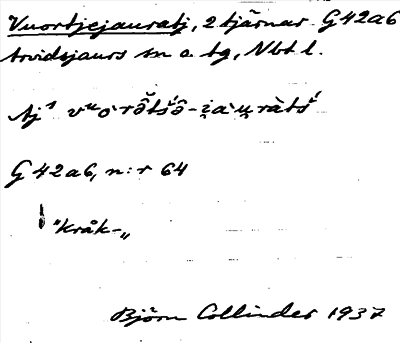 Vuortjejauratj, 2 tjärnar. G42a6
Arvidsjaurs sn o. tg, Nbt l.
Aj¹ vᵘo·rə̆tśə̑-i̯a·u̯ràtś
G 42 a 6, n:r 64
"kråk-„
Björn Collinder 1937